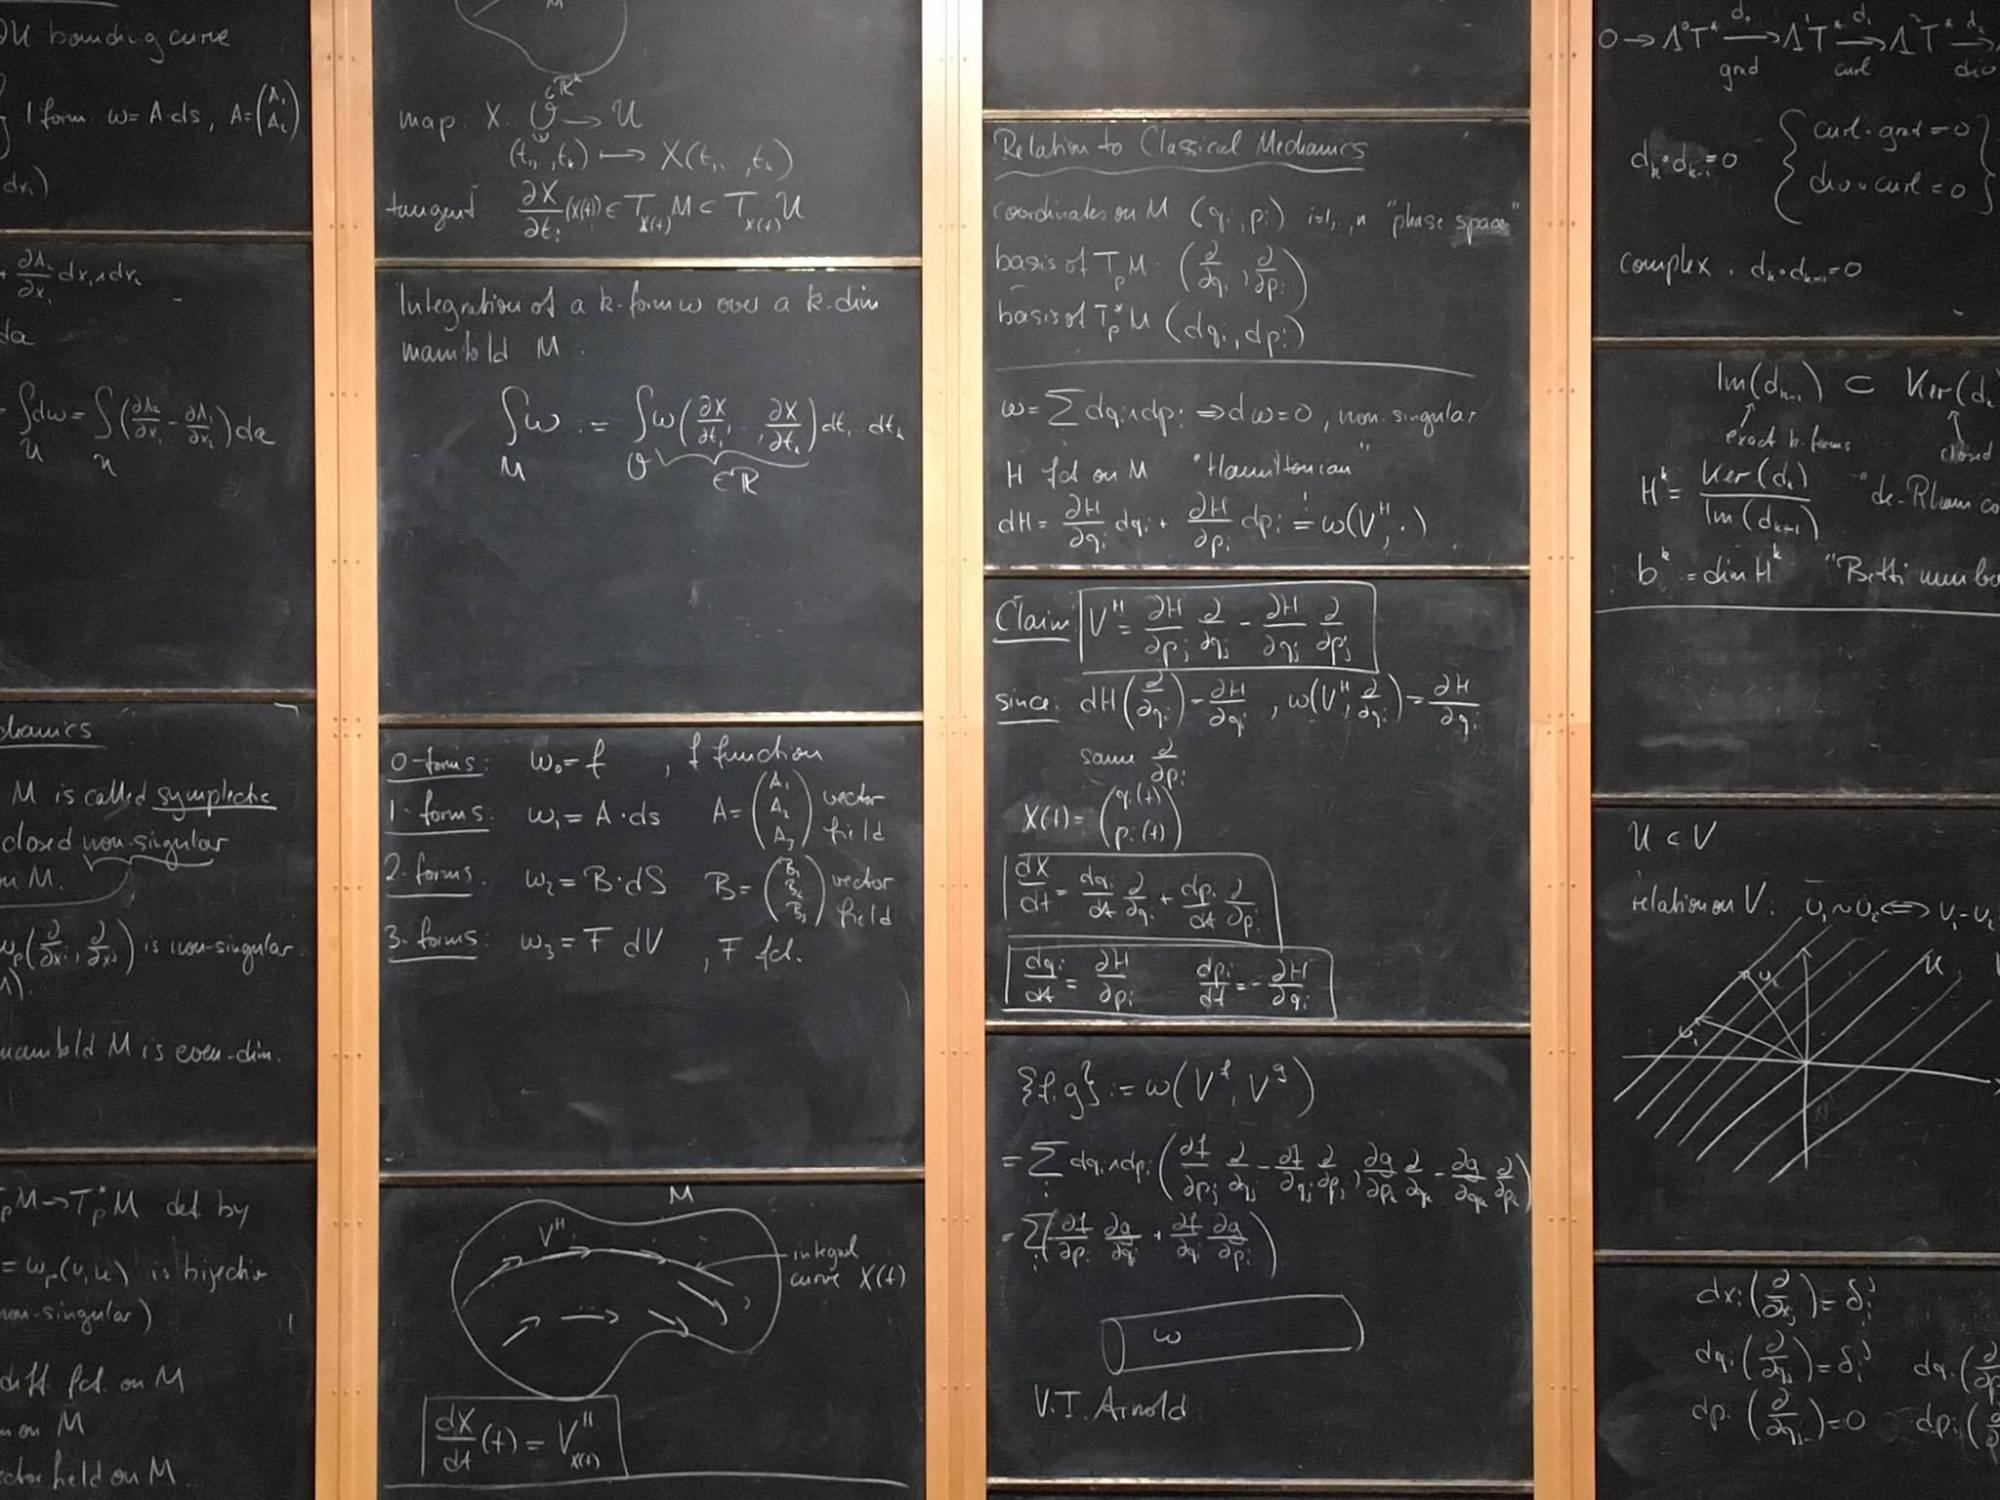 ∂U bounding curve
1 form ω = A·ds, A = (A₁ A₂)
dx₁)
+ ∂A₂/∂x₁ dx₁∧dx₂
da
= ∫_U dω = ∫_U (∂A₂/∂x₁ - ∂A₁/∂x₂) da
chanics
M is called symplectic
closed non-singular
on M.
ω_p(∂/∂x_i, ∂/∂x_j) is non-singular
manifold M is even-dim.
T_pM → T_p*M def by
= ω_p(v,u) is bijectiv
non-singular)
diff. fct. on M
on M
ector field on M
M
map. X. O ⊂ ℝᵏ → U
(t₁, ,t_k) ↦ X(t₁, ,t_k)
tangent ∂X/∂t_i (X(t)) ∈ T_X(t) M ⊂ T_X(t) U
Integration of a k-form ω over a k-dim
manifold M.
∫_M ω := ∫_O ω(∂X/∂t₁, ,∂X/∂t_k) dt₁ dt_k
∈ℝ
0-forms: ω₀ = f , f function
1-forms: ω₁ = A·ds A = (A₁ A₂ A₃) vector field
2-forms. ω₂ = B·dS B = (B₁ B₂ B₃) vector field
3-forms: ω₃ = F dV , F fct.
M
V^H
integral
curve X(t)
dX/dt (t) = V^H_X(t)
Relation to Classical Mechanics
coordinates on M (q_i, p_i) i=1,..,n "phase space"
basis of T_pM. (∂/∂q_i, ∂/∂p_i)
basis of T_p*M (dq_i, dp_i)
ω = Σ dq_i∧dp_i ⇒ dω=0, non-singular
H fct on M "Hamiltonian"
dH = ∂H/∂q_i dq_i + ∂H/∂p_i dp_i =! ω(V^H, ·)
Claim V^H = ∂H/∂p_j ∂/∂q_j - ∂H/∂q_j ∂/∂p_j
since: dH(∂/∂q_i) = ∂H/∂q_i , ω(V^H, ∂/∂q_i) = ∂H/∂q_i
same ∂/∂p_i
X(t) = (q_i(t) p_i(t))
dX/dt = dq_i/dt ∂/∂q_i + dp_i/dt ∂/∂p_i
dq_i/dt = ∂H/∂p_i dp_i/dt = -∂H/∂q_i
{f,g} := ω(V^f, V^g)
= Σ_i dq_i∧dp_i (∂f/∂p_j ∂/∂q_j - ∂f/∂q_j ∂/∂p_j, ∂g/∂p_k ∂/∂q_k - ∂g/∂q_k ∂/∂p_k)
= Σ_i(∂f/∂p_i ∂g/∂q_i + ∂f/∂q_i ∂g/∂p_i)
ω
V.I. Arnold
0 → Λ⁰T* →d₀ Λ¹T* →d₁ Λ²T* →d₂
grad curl div
d_k∘d_k-1=0 { curl·grad = 0
div·curl = 0 }
complex. d_k∘d_k-1=0
Im(d_k-1) ⊂ Ker(d_k
exact k-forms closed
H^k = Ker(d_k)/Im(d_k-1) "de-Rham co
b^k = dim H^k "Betti numbe
U ⊂ V
relation on V. v₁~v₂ ⟺ v₁-v₂
v₂ U
v₁
dx_i(∂/∂x_j) = δ_i^j
dq_i(∂/∂q_j) = δ_i^j dq_i(∂
dp_i(∂/∂q_j) = 0 dp_i(∂